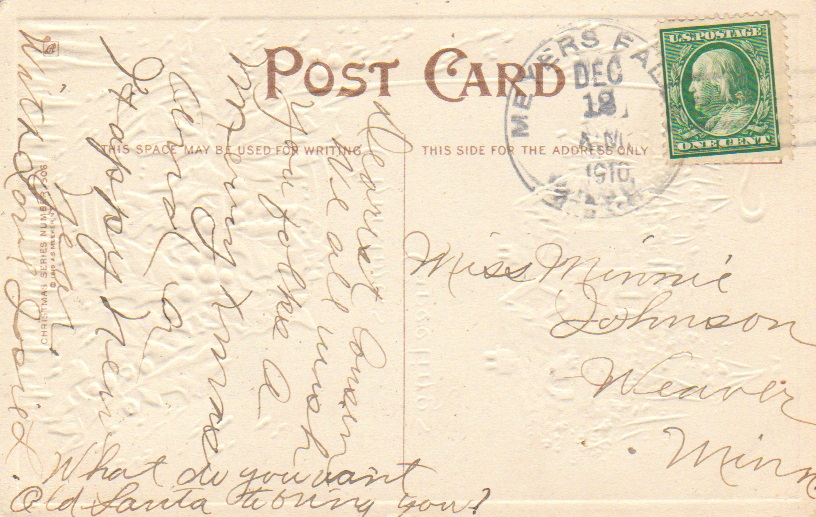 POST CARD
THIS SPACE MAY BE USED FOR WRITING
THIS SIDE FOR THE ADDRESS ONLY
MEYERS FALLS
DEC
12
A.M.
1910
WASH.
U.S. POSTAGE
ONE CENT
Dearest Cousin
We all wish
you folks a
Merry Xmas
and a
Happy New
Year.
With love
What do you want
Old Santa to bring you?
Miss Minnie
Johnson
Weaver
Minn.
CHRISTMAS SERIES NUMBER